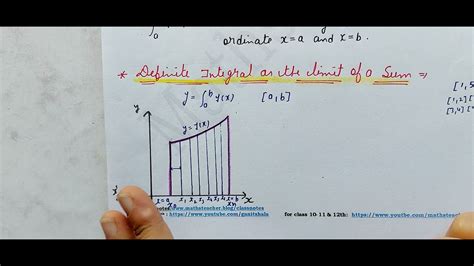 ∫₀
ordinate x=a and x=b.
* Definite Integral as the limit of a Sum ⇒
y = ∫₀ᵇ y(x) [a,b]
y
y = f(x)
x=a x₁ x₂ x₃ x=b x
x₀ xₙ
notes: https://www.mathsteacher.blog/classnotes
https://youtube.com/ganitshala for class 10-11 & 12th: https://youtube.com/mathstea
[1,5
[1,2] [